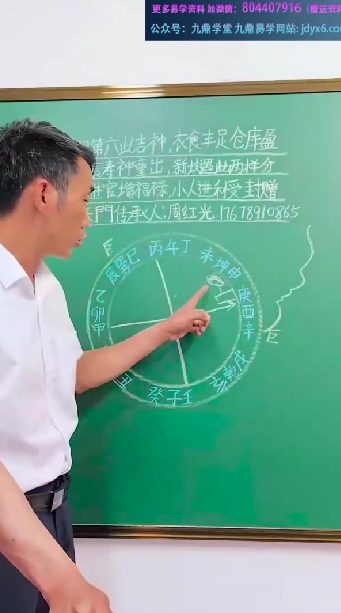 更多易学资料 加微信：804407916（赠送资料
公众号：九鼎学堂 九鼎易学网站: jdyx6.com
第六此吉神，衣食丰足仓库盈
寿神重出，新坟遇此两样分
官增福禄，小人进利受封赠
门传承人：周红光：17678910865
E
辰巽巳 丙午丁 未坤申
乙卯甲
庚酉辛
E
戌
丑
癸子壬